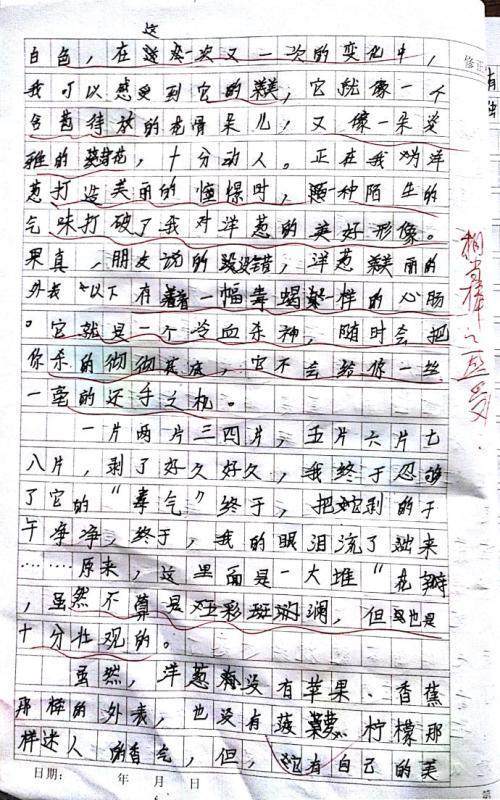 这
白色，在这次一次又一次的变化中，
我可以感受到它的美，它就像一个
含苞待放的花骨朵儿，又像一朵淡
雅的菊花，十分动人。正在我为洋
葱打造美丽的憧憬时，一种陌生的
气味打破了我对洋葱的美好形像。
果真，朋友说的没错，洋葱美丽的
外表以下有着一幅毒蝎一样的心肠
。它就是一个冷血杀神，随时会把
你杀的彻彻底底，它不会给你一丝
一毫的还手之机。
一片两片三四片，五片六片七
八片，剥了好久好久，我终于忍够
了它的“毒气”终于，把它剥的干
干净净，终于，我的眼泪流了出来
……原来，这里面是一大堆“花瓣
，虽然不算是五彩斑斓，但也是
十分壮观的。
虽然，洋葱没有苹果、香蕉
那样的外表，也没有菠萝、柠檬那
样迷人的香气，但，它有自己的美
日期： 年 月 日
修正
第